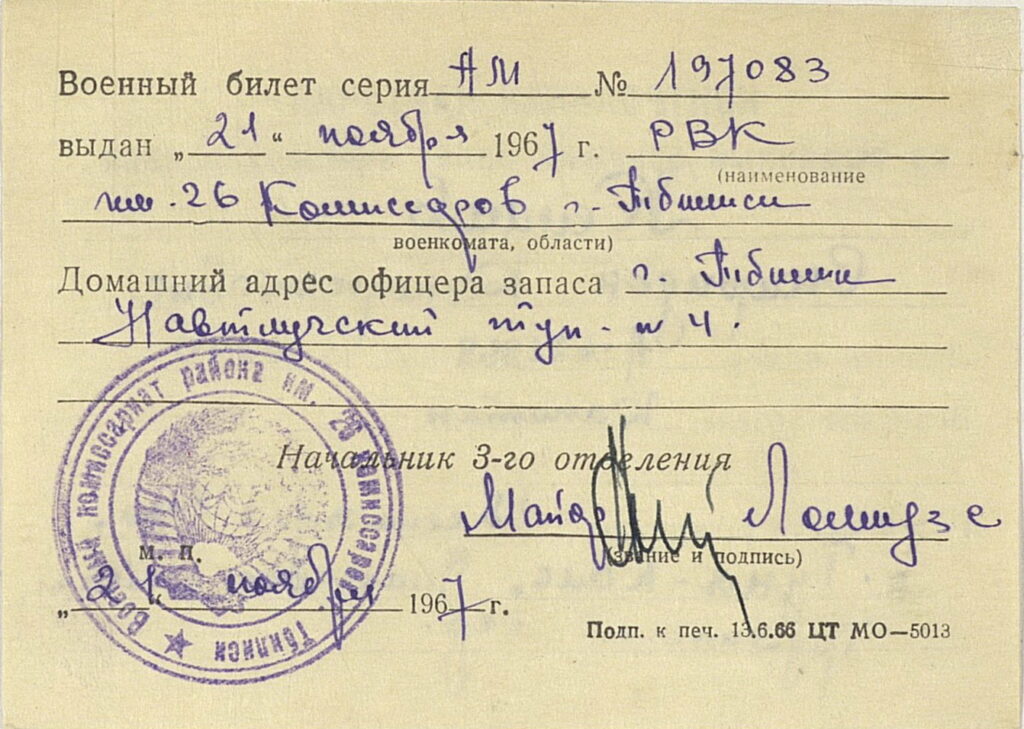 Военный билет серия АМ № 197083
выдан „ 21 “ ноября 1967 г. РВК
(наименование
им. 26 Комиссаров г. Тбилиси
военкомата, области)
Домашний адрес офицера запаса г. Тбилиси
Навтлугский туп. № 4.
Начальник 3-го отделения
Майор Ломидзе
(звание и подпись)
м. п.
„ 21 “ ноября 1967 г.
Подп. к печ. 13.6.66 ЦТ МО—5013
Военный комиссариат района им. 26 комиссаров Тбилиси